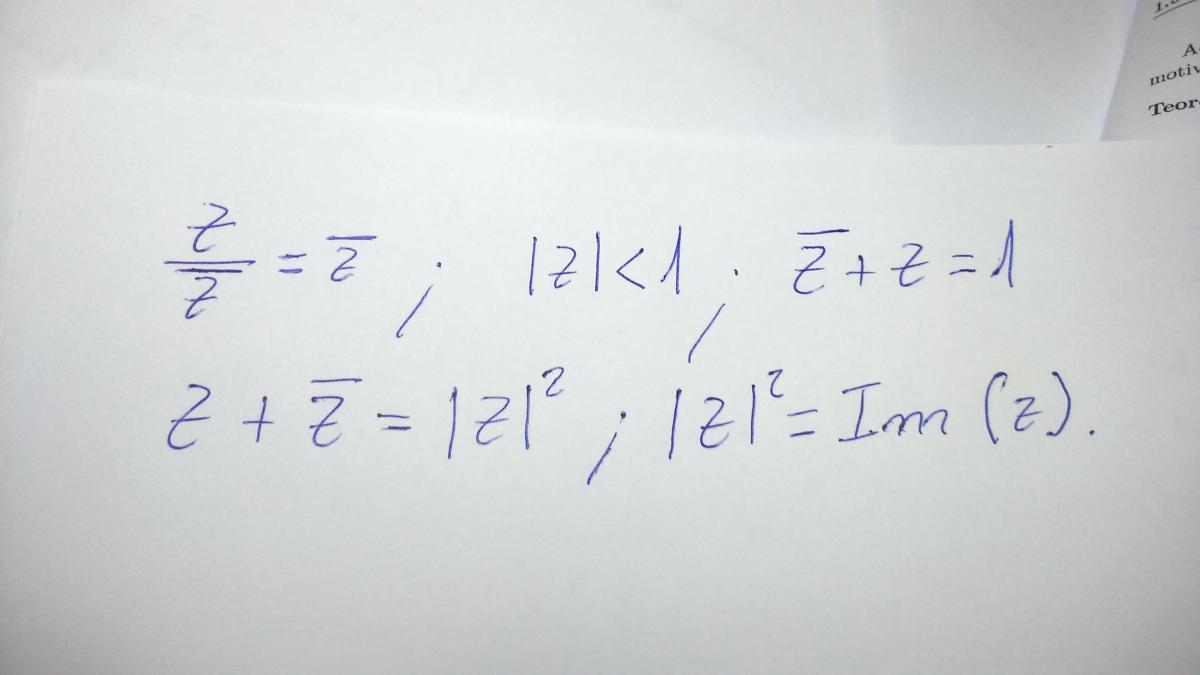 1.
A
motiv
Teor
z/z̅ = z̅ ; |z| < 1 ; z̅ + z = 1
z + z̅ = |z|² ; |z|² = Im (z).